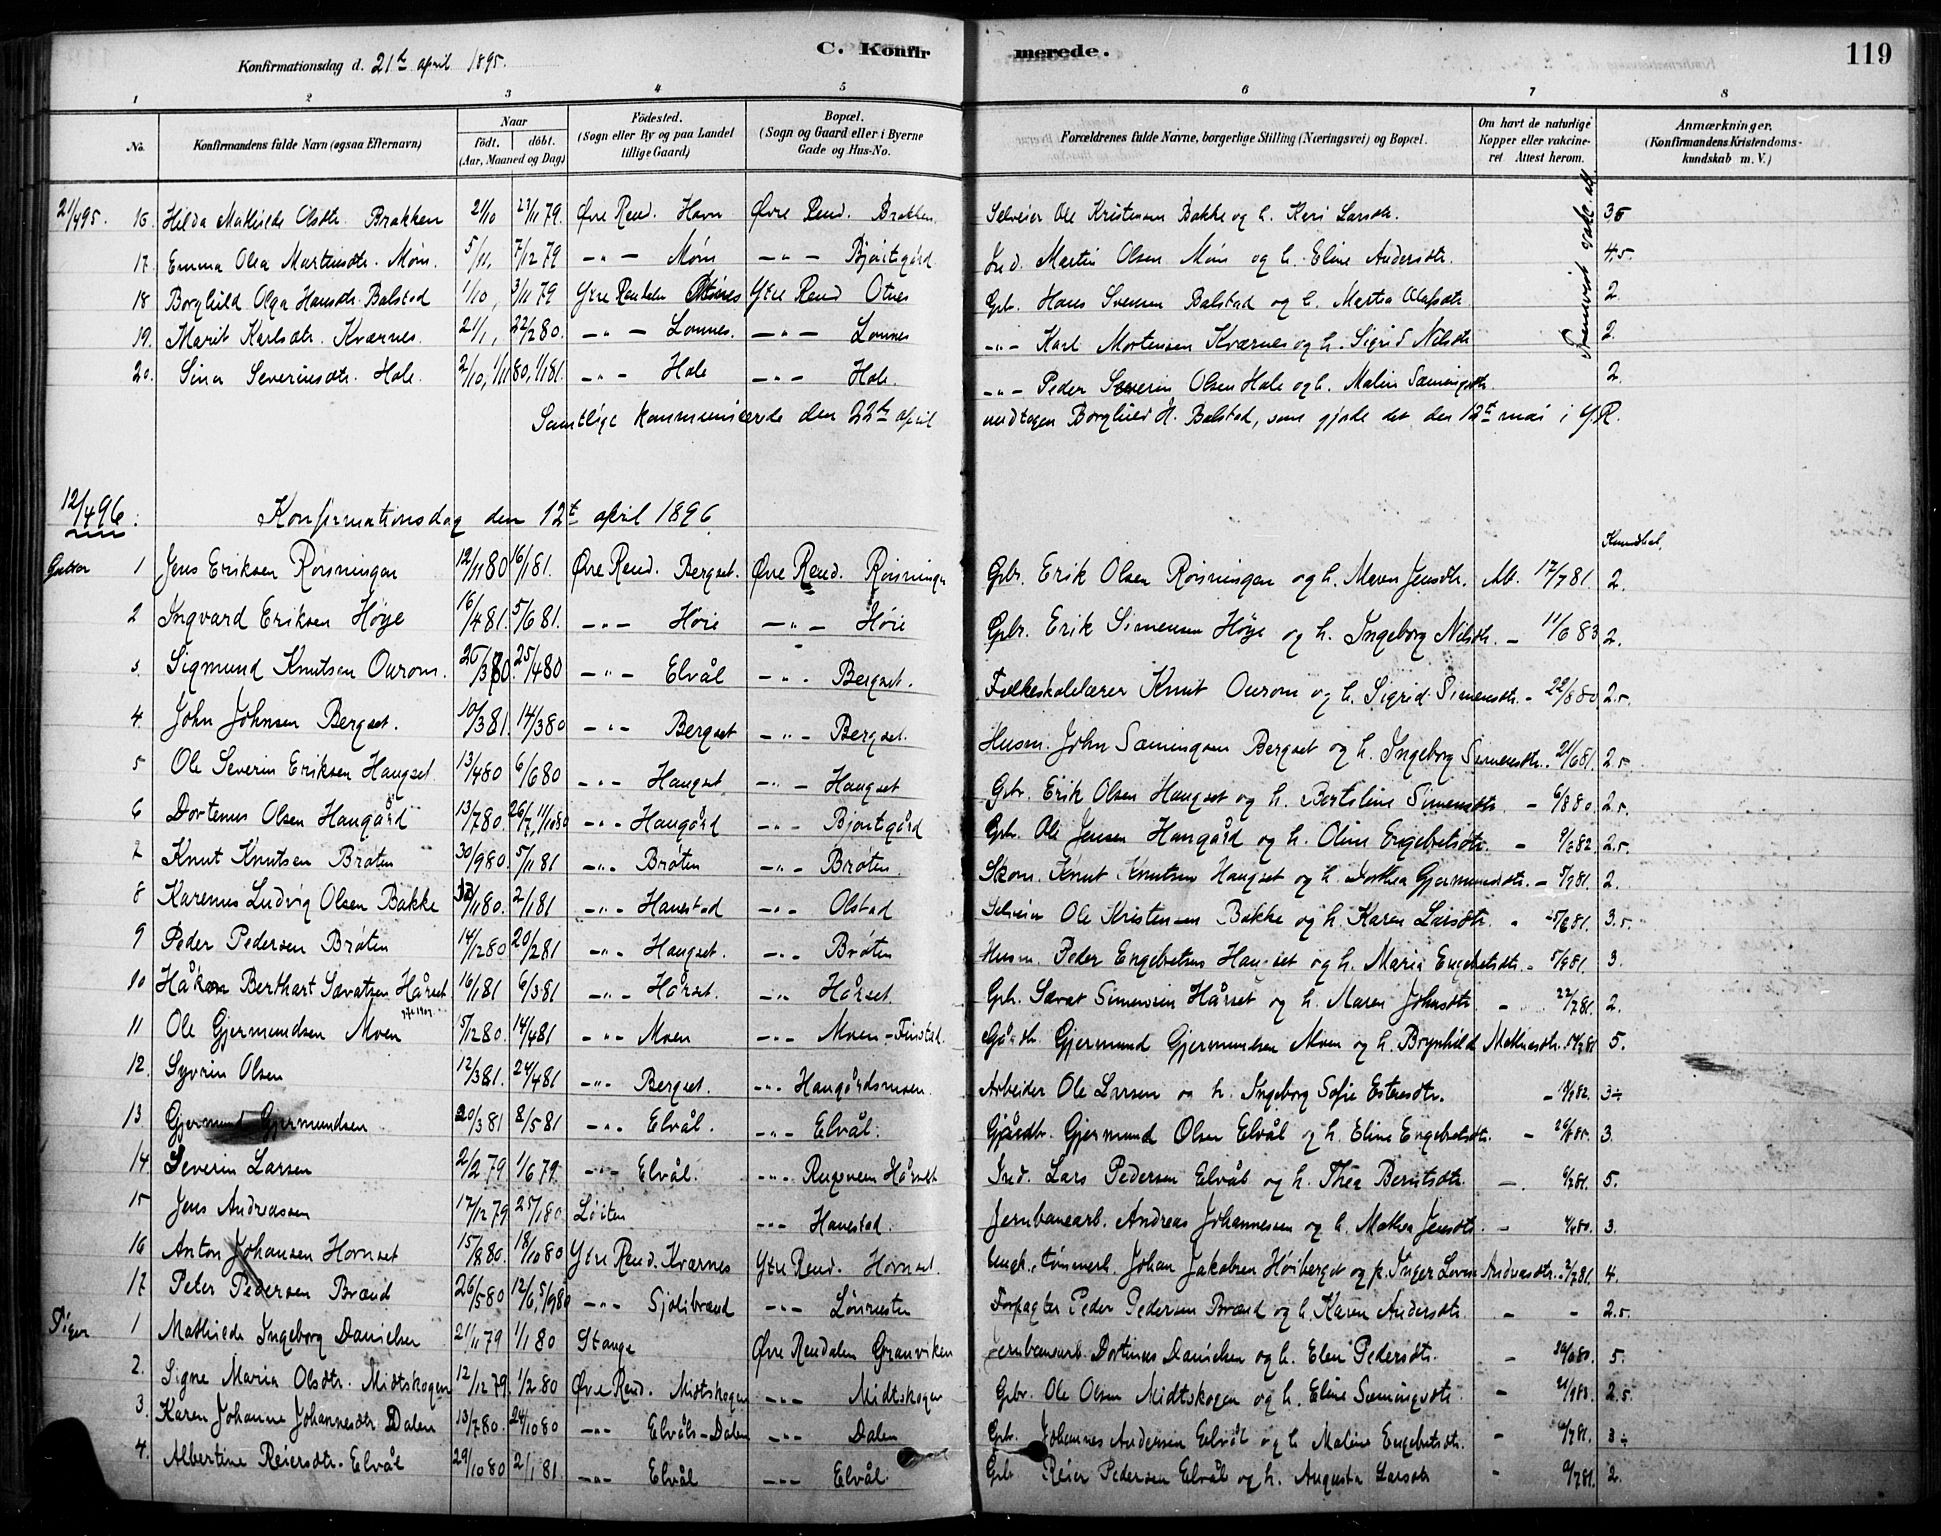 C. Konfir merede. 119
Konfirmationsdag d. 21de april 1895.
1 2 3 4 5 6 7 8
No. Konfirmandens fulde Navn (ogsaa Efternavn) Naar födt. döbt. (Aar, Maaned og Dag) Födested. (Sogn eller By og paa Landet tillige Gaard) Bopæl. (Sogn og Gaard eller i Byerne Gade og Hus-No. Forældrenes fulde Navne, borgerlige Stilling (Næringsvei) og Bopæl. Om havt de naturlige Kopper eller vakcineret Attest herom. Anmærkninger. (Konfirmandens Kristendomskundskab m. V.)
21/4 95. 16. Hilda Mathilde Olsdtr. Brækken 2/10 23/11 79. Øvre Rend. Havn Øvre Rend. Brækken Selveier Ole Kristensen Bakke og h. Kari Larsdtr. 3 5
17. Emma Olea Martinsdtr. Møm. 5/11, 7/12 79 -"- Møm -"- Bjørtsgård Ind. Martin Olsen Møm og h. Eline Andersdtr. 4.5.
18 Borghild Olga Hansdtr. Balstad 1/10, 3/11 79 Ytre Rendalen Otnes Ytre Rend Otnes Gbr. Hans Svensen Balstad og h. Martea Olafsdtr 2
19. Marit Karlsdtr. Kværnes. 21/1, 22/2 80. -"- Lomnes. -"- Lomnes -"- Karl Mortensen Kværnes og h. Sigrid Nilsdtr 2.
20. Sina Severinsdtr. Hole. 2/10, 1/11 80, 1/1 81. -"- Hole -"- Hole. -"- Peder Severin Olsen Hole og h. Malin Sæmingsdtr 2
Samtlige kommunicerede den 22de april undtagen Borghild H. Balstad, som gjorde det den 12te mai i Y.R.
12/4 96. Konfirmationsdag den 12te april 1896
Gutter 1 Jens Eriksen Røisningen 12/11 80 16/1 81. Øvre Rend. Bergset. Øvre Rend. Røisningen Gbr. Erik Olsen Røisningen og h. Maren Jensdtr. Att. 17/7 81. 2.
2 Ingvard Eriksen Høye 16/4 81. 5/6 81. -"- Høie -"- Høie Gbr. Erik Simensen Høye og h. Ingeborg Nilsdtr. - 11/6 83 2.
3. Sigmund Knutsen Ourom. 26/3 80. 25/4 80 -"- Elvål -"- Bergset. Folkeskolelærer Knut Ourom og h. Sigrid Simensdtr. - 22/8 80 2.5
4. John Johnsen Bergset. 10/3 81. 14/3 80 -"- Bergset -"- Bergset. Husm. John Sæmingsen Bergset og h. Ingeborg Simensdtr. 21/6 81. 2.5
5 Ole Severin Eriksen Haugset. 13/4 80 6/6 80 -"- Haugset -"- Haugset Gbr. Erik Olsen Haugset og h. Berteline Simensdtr - 6/8 80. 2.5.
6 Dortenus Olsen Haugård 13/7 80. 26/7, 11/10 80 -"- Haugård -"- Bjørtgård Gbr. Ole Jensen Haugård og h. Oline Engebretsdtr. - 9/6 82. 2.5.
7 Knut Knutsen Brøten 30/9 80. 5/1 81 -"- Brøten -"- Brøten. Skom. Knut Knutsen Haugset og h. Dorthea Gjermundsdtr. - 5/9 81. 2.
8 Karenus Ludvig Olsen Bakke 12/11 80. 2/1 81 -"- Hanestad -"- Olstad Selveier Ole Kristensen Bakke og h. Karen Larsdtr. - 5/6 81. 3.5.
9 Peder Pedersen Brøten 14/12 80 20/2 81 -"- Haugset. -"- Brøten Husm. Peder Engebretsen Haugset og h. Maria Engebretsdtr. - 5/9 81. 3.
10 Håkon Berthart Sævatsen Hårset 16/1 81 6/3 81 -"- Hårset. -"- Hårset Gbr. Sævat Simensen Hårset og h. Maren Johnsdtr - 22/7 81. 2.
11 Ole Gjermundsen Moen 5/12 80. 14/4 81 -"- Moen -"- Moen-Finstad. Gårdbr. Gjermund Gjermundsen Moen og h. Brynhild Mathiasdtr. 5.
12. Syver Olsen 12/3 81. 24/4 81 -"- Bergset. -"- Haugårdsmoen. Arbeider Ole Larsen og h. Ingeborg Sofie Estensdtr. 3÷
13. Gjermund Gjermundsen 20/3 81 8/5 81 -"- Elvål. -"- Elvål. Gårdbr. Gjermund Olsen Elvål og h. Eline Engebretsdtr. 3.
14. Severin Larsen 2/2 79 1/6 79. -"- Elvål. -"- Hårset Ind. Lars Pedersen Elvål og h. Thea Berntsdtr. 5.
15 Jens Andreassen 17/12 79 25/1 80. Løiten -"- Hanestad. Jernbanearb. Andreas Johannessen og h. Mathea Jensdtr. 3.
16 Anton Johansen Hornset 15/8 80. 18/10 80 Ytre Rend. Kværnes Ytre Rend. Hornset. Ungk. tømmerh. Johan Jakobsen Høiberget og p. Inger Lovise Andreasdtr. 2/7 81. 4.
17. Peter Pedersen Brænd 26/5 80 12/6, 5/9 80 -"- Sjølibrænd -"- Lønnesten Forpagter Peder Pedersen Brænd og h. Karen Andersdtr - - 2.5.
Piger 1 Mathilde Ingeborg Danielsen 21/11 79 1/1 80 Stange Øvre Rendalen Granviken Jernbanearb. Dortinus Danielsen og h. Elen Pedersdtr. 5.
2. Signe Maria Olsdtr. Midtskogen 12/12 79. 1/2 80 Øvre Rend. Midtskogen -"- Midtskogen Gbr. Ole Olsen Midtskogen og h. Eline Sæmingsdtr 2.5
3. Karen Johanne Johannesdtr Dalen 13/7 80. 24/10 80 -"- Elvåls-Dalen -"- Dalen Gbr. Johannes Andersen Elvål og h. Maline Engebretsdtr. 3÷
4. Albertine Reiersdtr. Elvål 29/10 80 2/1 81. -"- Elvål -"- Elvål Gbr Reier Pedersen Elvål og h. Augusta Larsdtr 2.